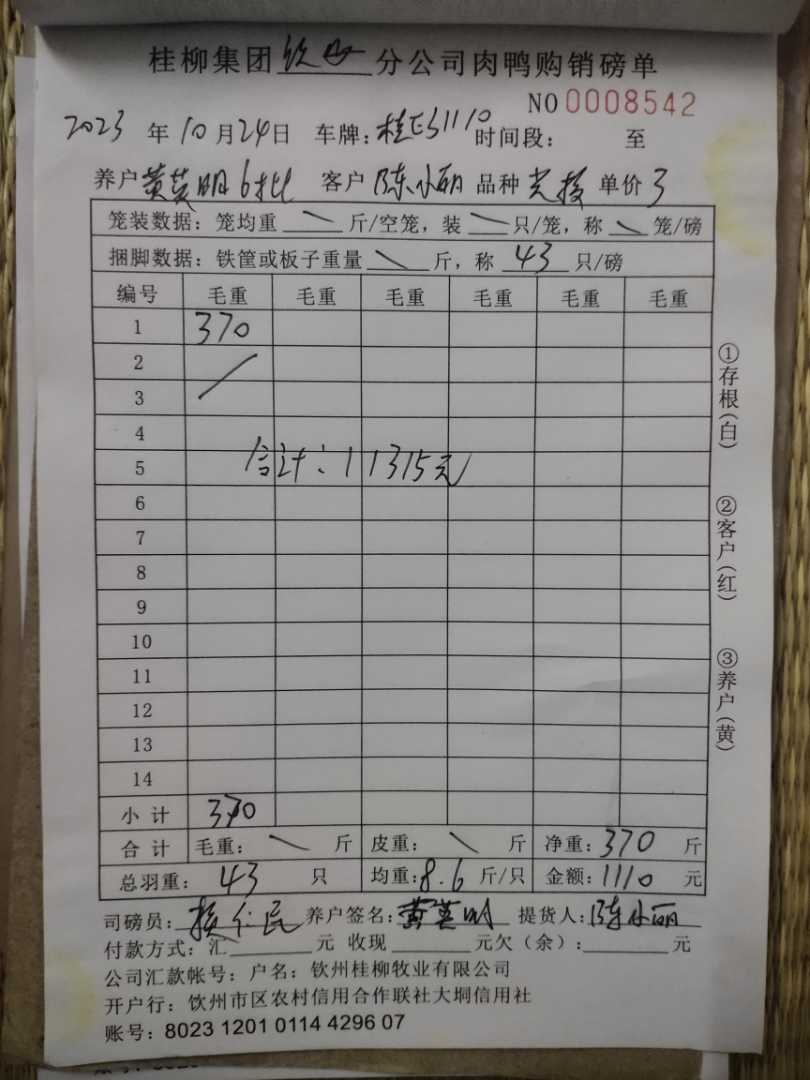 桂柳集团钦州分公司肉鸭购销磅单
NO 0008542
2023 年 10 月 24 日 车牌: 1110 时间段: 至
养户 黄英明 6批 客户 陈小丽 品种 单价 3
笼装数据: 笼均重 \ 斤/空笼, 装 \ 只/笼, 称 \ 笼/磅
捆脚数据: 铁筐或板子重量 \ 斤, 称 43 只/磅
编号 毛重 毛重 毛重 毛重 毛重 毛重
1 370
2
3
4
5
合计: 11315元
6
7
8
9
10
11
12
13
14
小计 370
合计 毛重: \ 斤 皮重: \ 斤 净重: 370 斤
总羽重: 43 只 均重: 8.6 斤/只 金额: 1110 元
司磅员: 仁民 养户签名: 黄英明 提货人: 陈小丽
付款方式: 汇 元 收现 元欠(余): 元
公司汇款帐号: 户名: 钦州桂柳牧业有限公司
开户行: 钦州市区农村信用合作联社大垌信用社
账号: 8023 1201 0114 4296 07
①存根(白)
②客户(红)
③养户(黄)